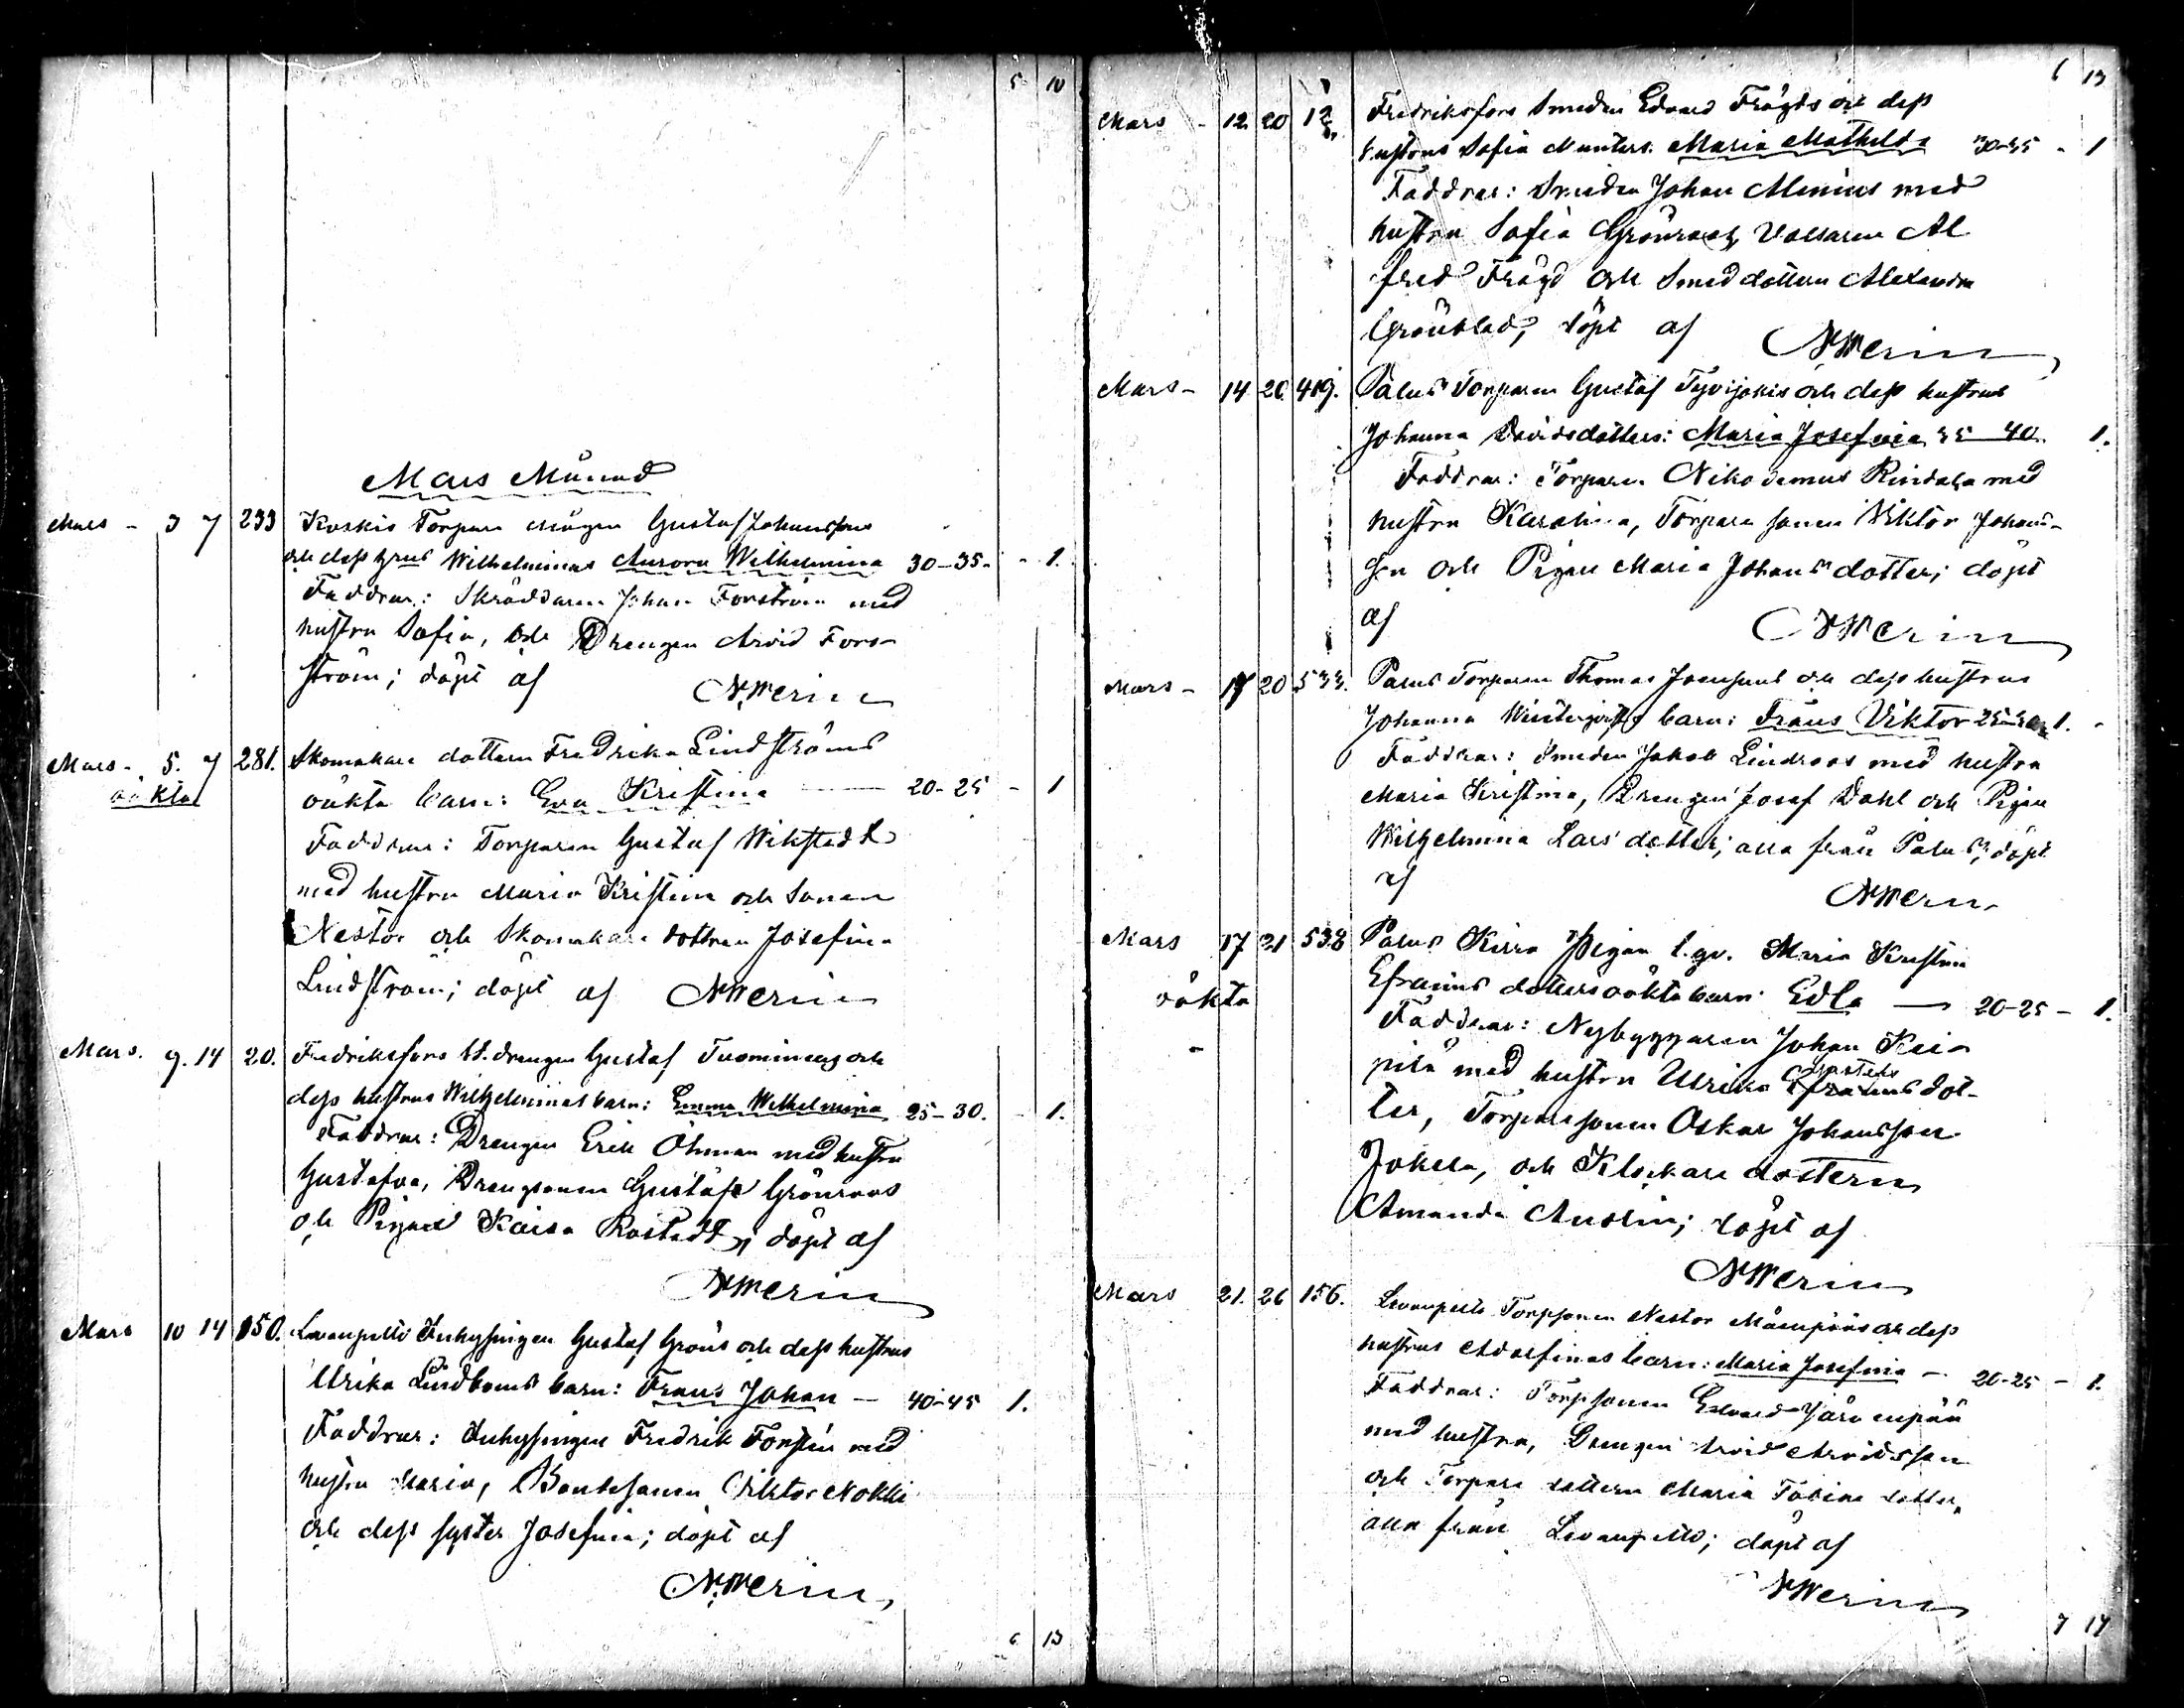 5 10
Mars Månad
Mars - 3 7 233 Koskis Torpare mågen Gustaf Johanssons
och dess hrus Wilhelminas Aurora Wilhelmina 30-35 - 1.
Faddrar: Skräddaren Johan Forström med
hustru Sofia, och Drengen Arvid Fors-
ström; döpt af NWerin
Mars - 5. 7 281. Skomakare dottern Fredrika Lindströms
oäkta oäkta barn: Eva Kristina 20-25 - 1
Faddrar: Torparen Gustaf Wikstedt
med hustru Maria Kristina och Sonen
Nestor och Skomakare dottren Josefina
Lindström; döpt af NWerin
Mars. 9. 14 20. Fredriksfors St.drengen Gustaf Tuominens och
dess hustrus Wilhelminas barn: Emma Wilhelmina 25-30. - 1.
Faddrar: Drengen Erik Öhman med hustru
Gustafva, Drengsonen Gustaf Grönroos
och Pigan Kaisa Rostedt; döpt af
NWerin
Mars 10 14 150. Levanpelto Inhysingen Gustaf Gröns och dess hustrus
Ulrika Lindboms barn: Frans Johan - 40-45 1.
Faddrar: Inhysingen Fredrik Forstén med
hustru Maria, Bondesonen Viktor Nokki
och dess syster Josefina; döpt af
NWerin
6 13
6 13
Mars - 12 20 12 Fredriksfors Smeden Edvard Fröjds och dess
hustrus Sofia Munters: Maria Mathilda 30-35 - 1
Faddrar: Smeden Johan Alenius med
hustru Sofia Grönroos, Valsaren Al
fred Fröjd och Smeddottern Alexandra
Grönblad; döpt af NWerin
Mars - 14 20 419. Palus Torparen Gustaf Tyvijokis och dess hustrus
Johanna Davidsdotters: Maria Josefina 35-40. 1.
Faddrar: Torparen Nikodemus Rindala med
hustru Karolina, Torpare sonen Viktor Johans-
son och Pigan Maria Johansdotter; döpt
af NWerin
Mars - 17 20 533. Palus Torparen Thomas Josefssons och dess hustrus
Johanna barn: Frans Viktor 25-30 1.
Faddrar: Smeden Jakob Lindroos med hustru
Maria Kristina, Drengen Josef Dahl och Pigan
Wilhelmina Larsdotter; alla från Palus; döpt
af NWerin
Mars 17 21 538 Palus Kirra Pigan l.qv. Maria Kristina
oäkta Efraims dotters oäkta barn: Edla - 20-25 - 1.
Faddrar: Nybyggaren Johan Kei-
pilä med hustru Ulrika Efraimsdot-
ter, Torparesonen Oskar Johansson
Jokela, och Klockare dottern
Amanda Austin; döpt af
NWerin
Mars 21. 26 156. Levanpelto Torpsonen Nestor Mäenpääs och dess
hustrus Adolfinas barn: Maria Josefina - 20-25 - 1.
Faddrar: Torpsonen Edvard Järvenpää
med hustru, Drengen Arvid Arvidsson
och Torpare dottern Maria Tobiae dotter,
alla från Levanpelto; döpt af
NWerin
7 17